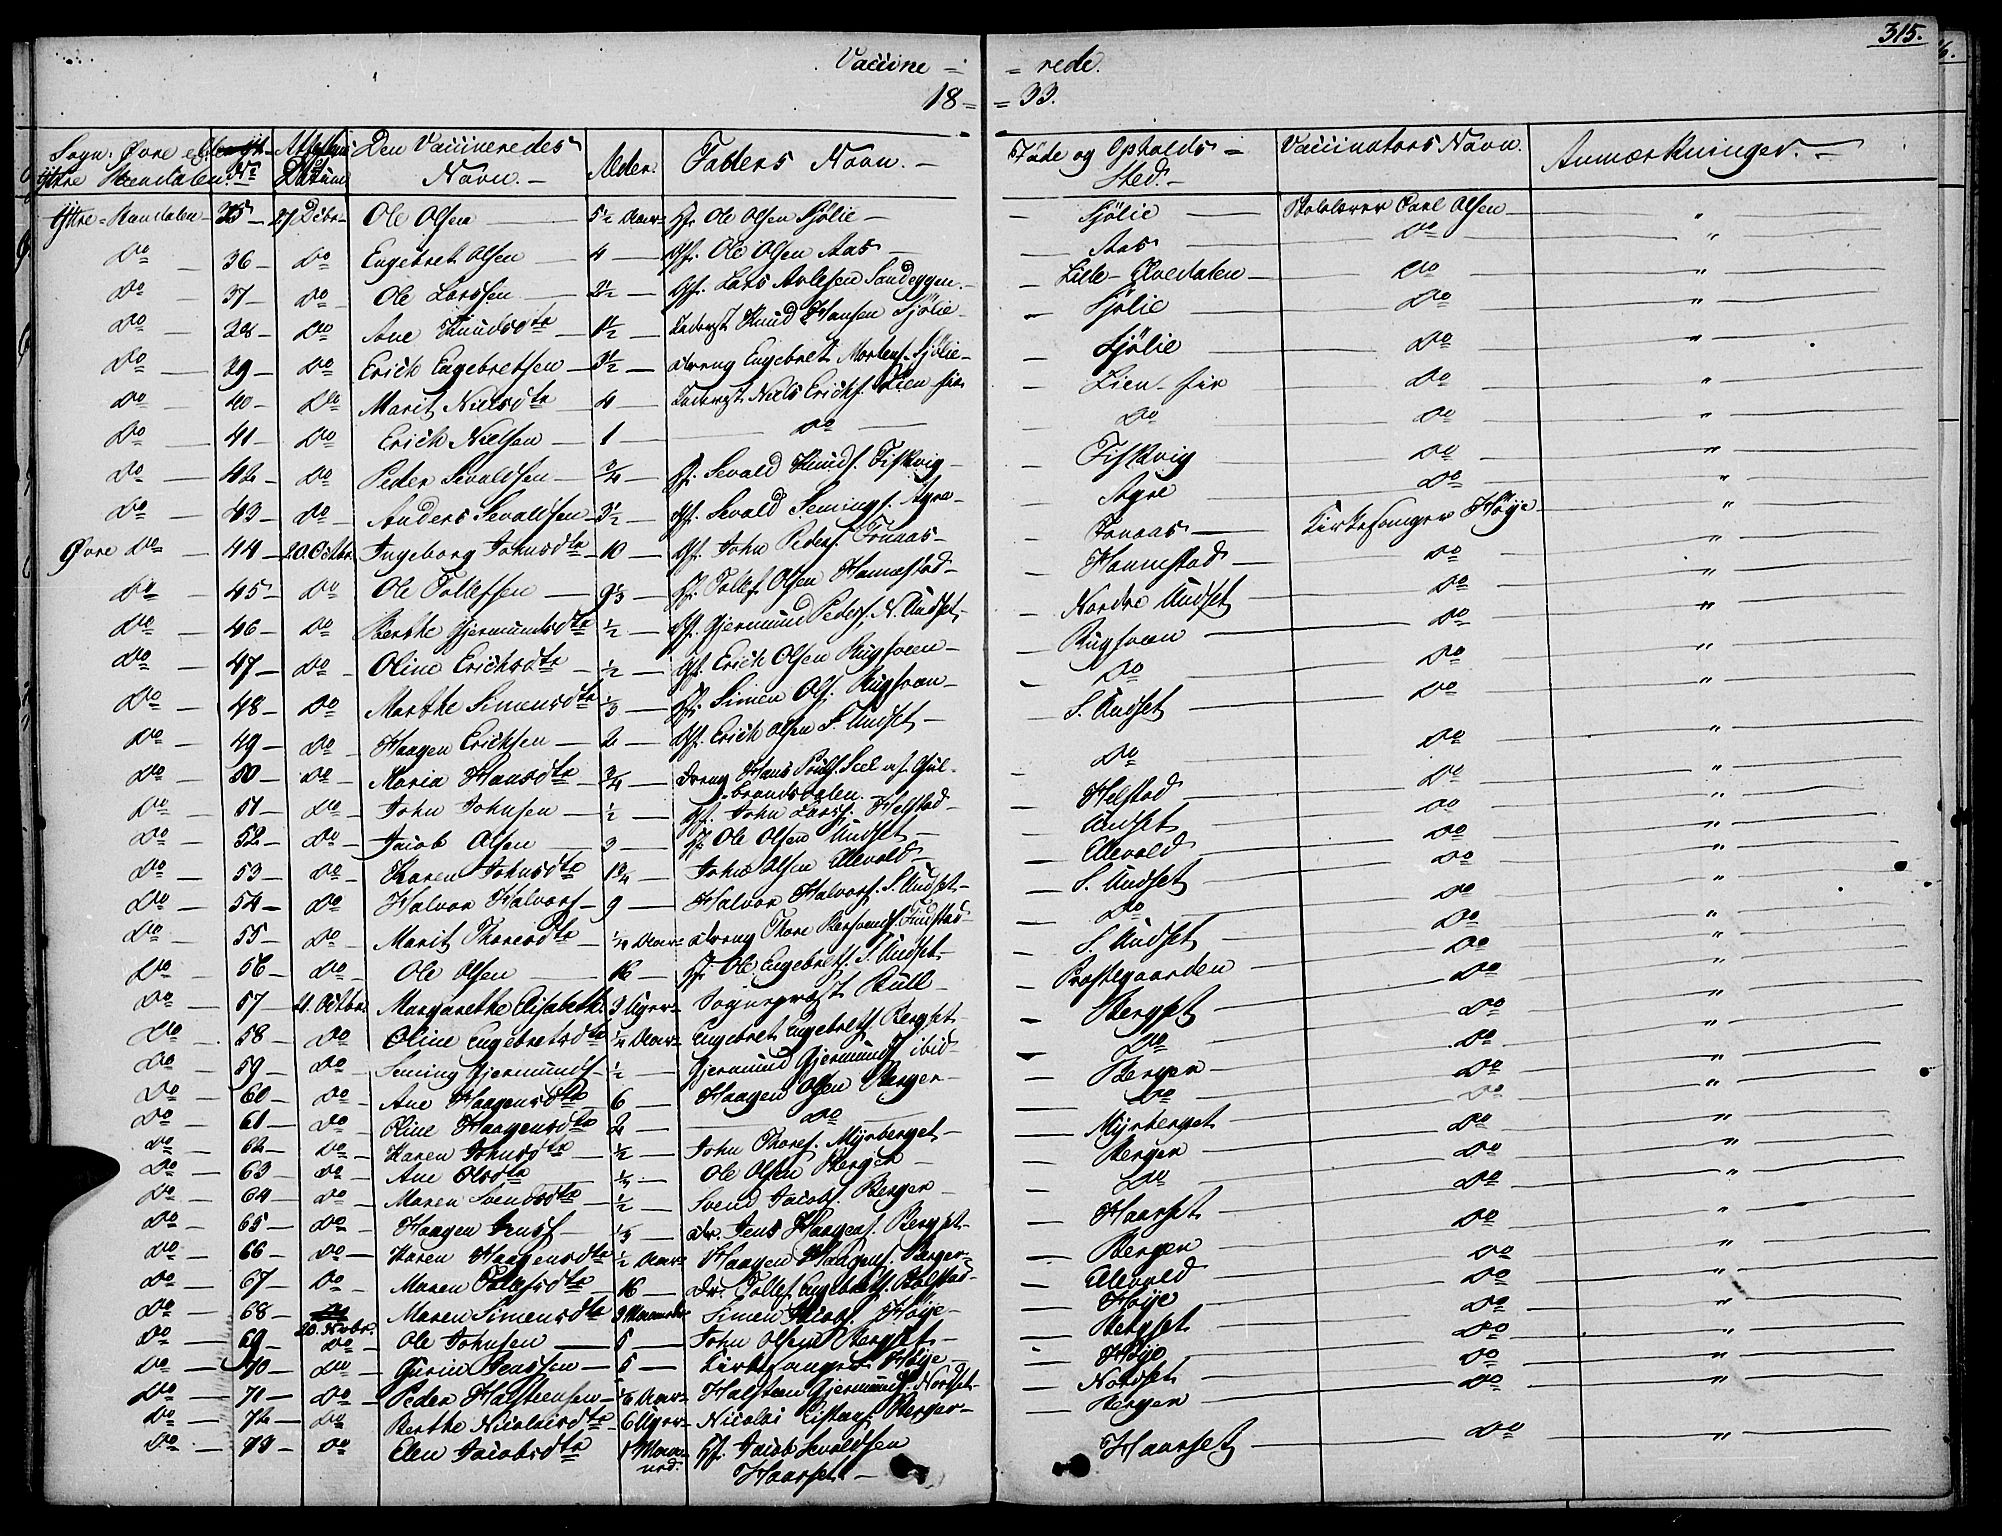 315.
Vaccine = = rede.
18 = = 33.
Sogn: Øvre eller Attestens Den Vaccineredes Alder. Faders Navn. Føde og Opholds Vaccinators Navn. Anmærkninger.
Ytre Rendalen. No Datum Navn. Sted.
Ytre Rendalen 35 27 Octbr Ole Olsen 5½ Aar Gf. Ole Olsen Sjølie Sjølie Carl Olsen "
Do 36 Do Engebret Olsen 4 Gf. Ole Olsen Aas Aas Do "
Do 37 Do Ole Larssen 2½ Gf. Lars Sandeggen Lille Elvedalen Do "
Do 38 Do Ane Knudsdtr 1½ Inderst Knud Hansen Sjølie Sjølie Do "
Do 39 Do Erich Engebretsen 3½ Dreng Engebret Mortens. Sjølie Sjølie Do "
Do 40 Do Marit Nielsdtr 4 Inderst Niels Erichs. Lien Lien Do "
Do 41 Do Erich Nielsen 1 Do Do Do "
Do 42 Do Peder Sevaldsen ¾ Gf. Sevald Knuds. Fiskvig Fiskvig Do "
Do 43 Do Anders Sevaldsen 3½ Gf. Sevald Semings. Agre Agre Do "
Øvre Do 44 20 Octbr Ingeborg Johnsdtr 10 Gf. John Peders. Fonaas Fonaas Kirkesanger Høye "
Do 45 Do Ole Tollefsen 9⅓ Gf. Tollef Olsen Hannestad Hannestad Do "
Do 46 Do Berthe Gjermundsdtr ½ Gf. Gjermund Peders. N. Undset Nordre Undset Do "
Do 47 Do Oline Erichsdtr ½ Gf. Erich Olsen Rugsveen Rugsveen Do "
Do 48 Do Marthe Simensdtr ⅓ Gf. Simen Ols. Rugsveen Do Do "
Do 49 Do Haagen Erichsen 2 Gf. Erich Olsen S. Undset S. Undset Do "
Do 50 Do Maria Hansdtr ¾ Dreng Hans Gulbrandsdalen Do Do "
Do 51 Do John Johnsen ½ Gf. John Larss. Helstad Helstad Do "
Do 52 Do Jacob Olsen 3 Gf. Ole Olsen Undset Undset Do "
Do 53 Do Karen Johnsdtr 1¾ John Olsen Ellevold Ellevold Do "
Do 54 Do Halvor Halvors. 9 Halvor Halvors. S. Undset S. Undset Do "
Do 55 Do Marit Thoresdtr ¼ Aar Dreng Thore Do Do "
Do 56 Do Ole Olsen 16 Gf. Ole Engebrets. S. Undset S. Undset Do "
Do 57 21 Octbr. Margarethe Elisabeth 3 Uger Sognepræst Bull Præstegaarden Do "
Do 58 Do Oline Engebretsdtr ¼ Aar Engebret Engebrets. Bergset Bergset Do "
Do 59 Do Seming Gjermunds. ½ Gjermund Gjermunds. ibid Do Do "
Do 60 Do Ane Haagensdtr 6 Haagen Olsen Berger Berger Do "
Do 61 Do Oline Haagensdtr 2 Do Do Do
Do 62 Do Karen Johnsdtr ½ John Thores. Myrberget Myrberget Do "
Do 63 Do Ane Olsdtr Ole Olsen Berger Berger Do "
Do 64 Do Maren Svendsdtr ½ Svend Jacobs. Berger Do Do "
Do 65 Do Haagen Jens. ⅓ Dr. Jens Haagens. Bergset Haarset Do "
Do 66 Do Karen Haagensdtr ½ Aar Haagen Haagens. Berger Berger Do "
Do 67 Do Maren Tollefsdtr 16 Dr. Tollef Engebrets. Ellevold Do "
Do 68 20. Novbr. Maren Simensdtr 3 Simen Jacobs. Høye Høye Do "
Do 69 Do Ole Johnsen 5 John Olsen Bergset Bergset Do "
Do 70 Do 5 Kirkesanger Høye Høye Do "
Do 71 Do Peder Halsteensen Aar Halsteen Gjermunds. Nordset Nordset Do "
Do 72 Do Berthe Nicolaisdtr 6 Uger Nicolai Berger Berger
Do 73 Do Elen Jacobsdtr 1 Maaned. Gf. Jacob Sevaldsen Haarset Haarset Do "